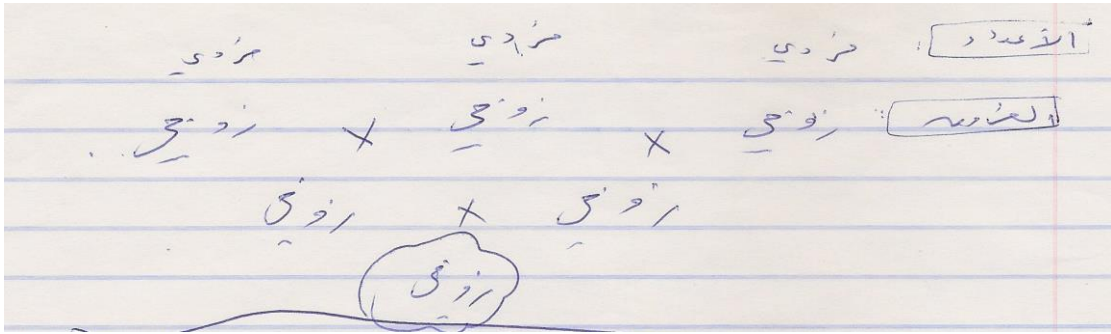 الأعداد : فردي فردي فردي
الفروق : زوجي × زوجي × زوجي
زوجي × زوجي
زوجي